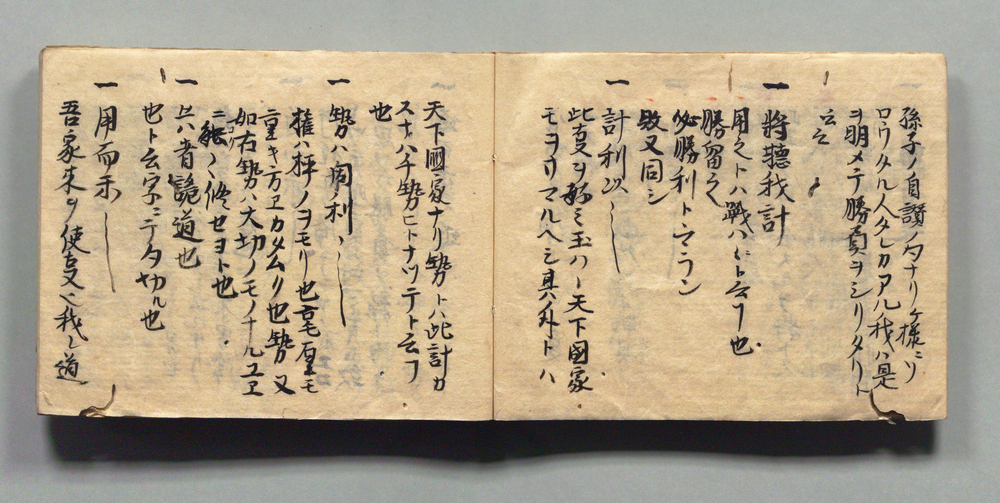 孫子ノ自讃ノ夕ナリケ様ニリ
ロウタル人タレカアル我ハ是
ヲ明メテ勝負ヲシリタリト
云之
一 將聴我計
用之トハ戦ハヽト云フ也
勝留之
必勝利トマラン
敗又同シ
一 計利以
此支ヲ極ミ玉ハヽ天下國家
モヲリマルヘシ其ノ外トハ
天下國家ナリ勢トハ此計カ
スナハチ勢ヒトナツテト云フ
也
一 勢ハ因利
権ハ秤ノヲモリ也毫厘モ
重キ方エカタムク也勢又
如右勢ハ大切ノモノナルユエ
ニ能〱修セヨト也
一 兵ハ者詭道也
也ト云字ニテ夕切ル也
一 用而示
吾家来ヲ使支モ我ト道